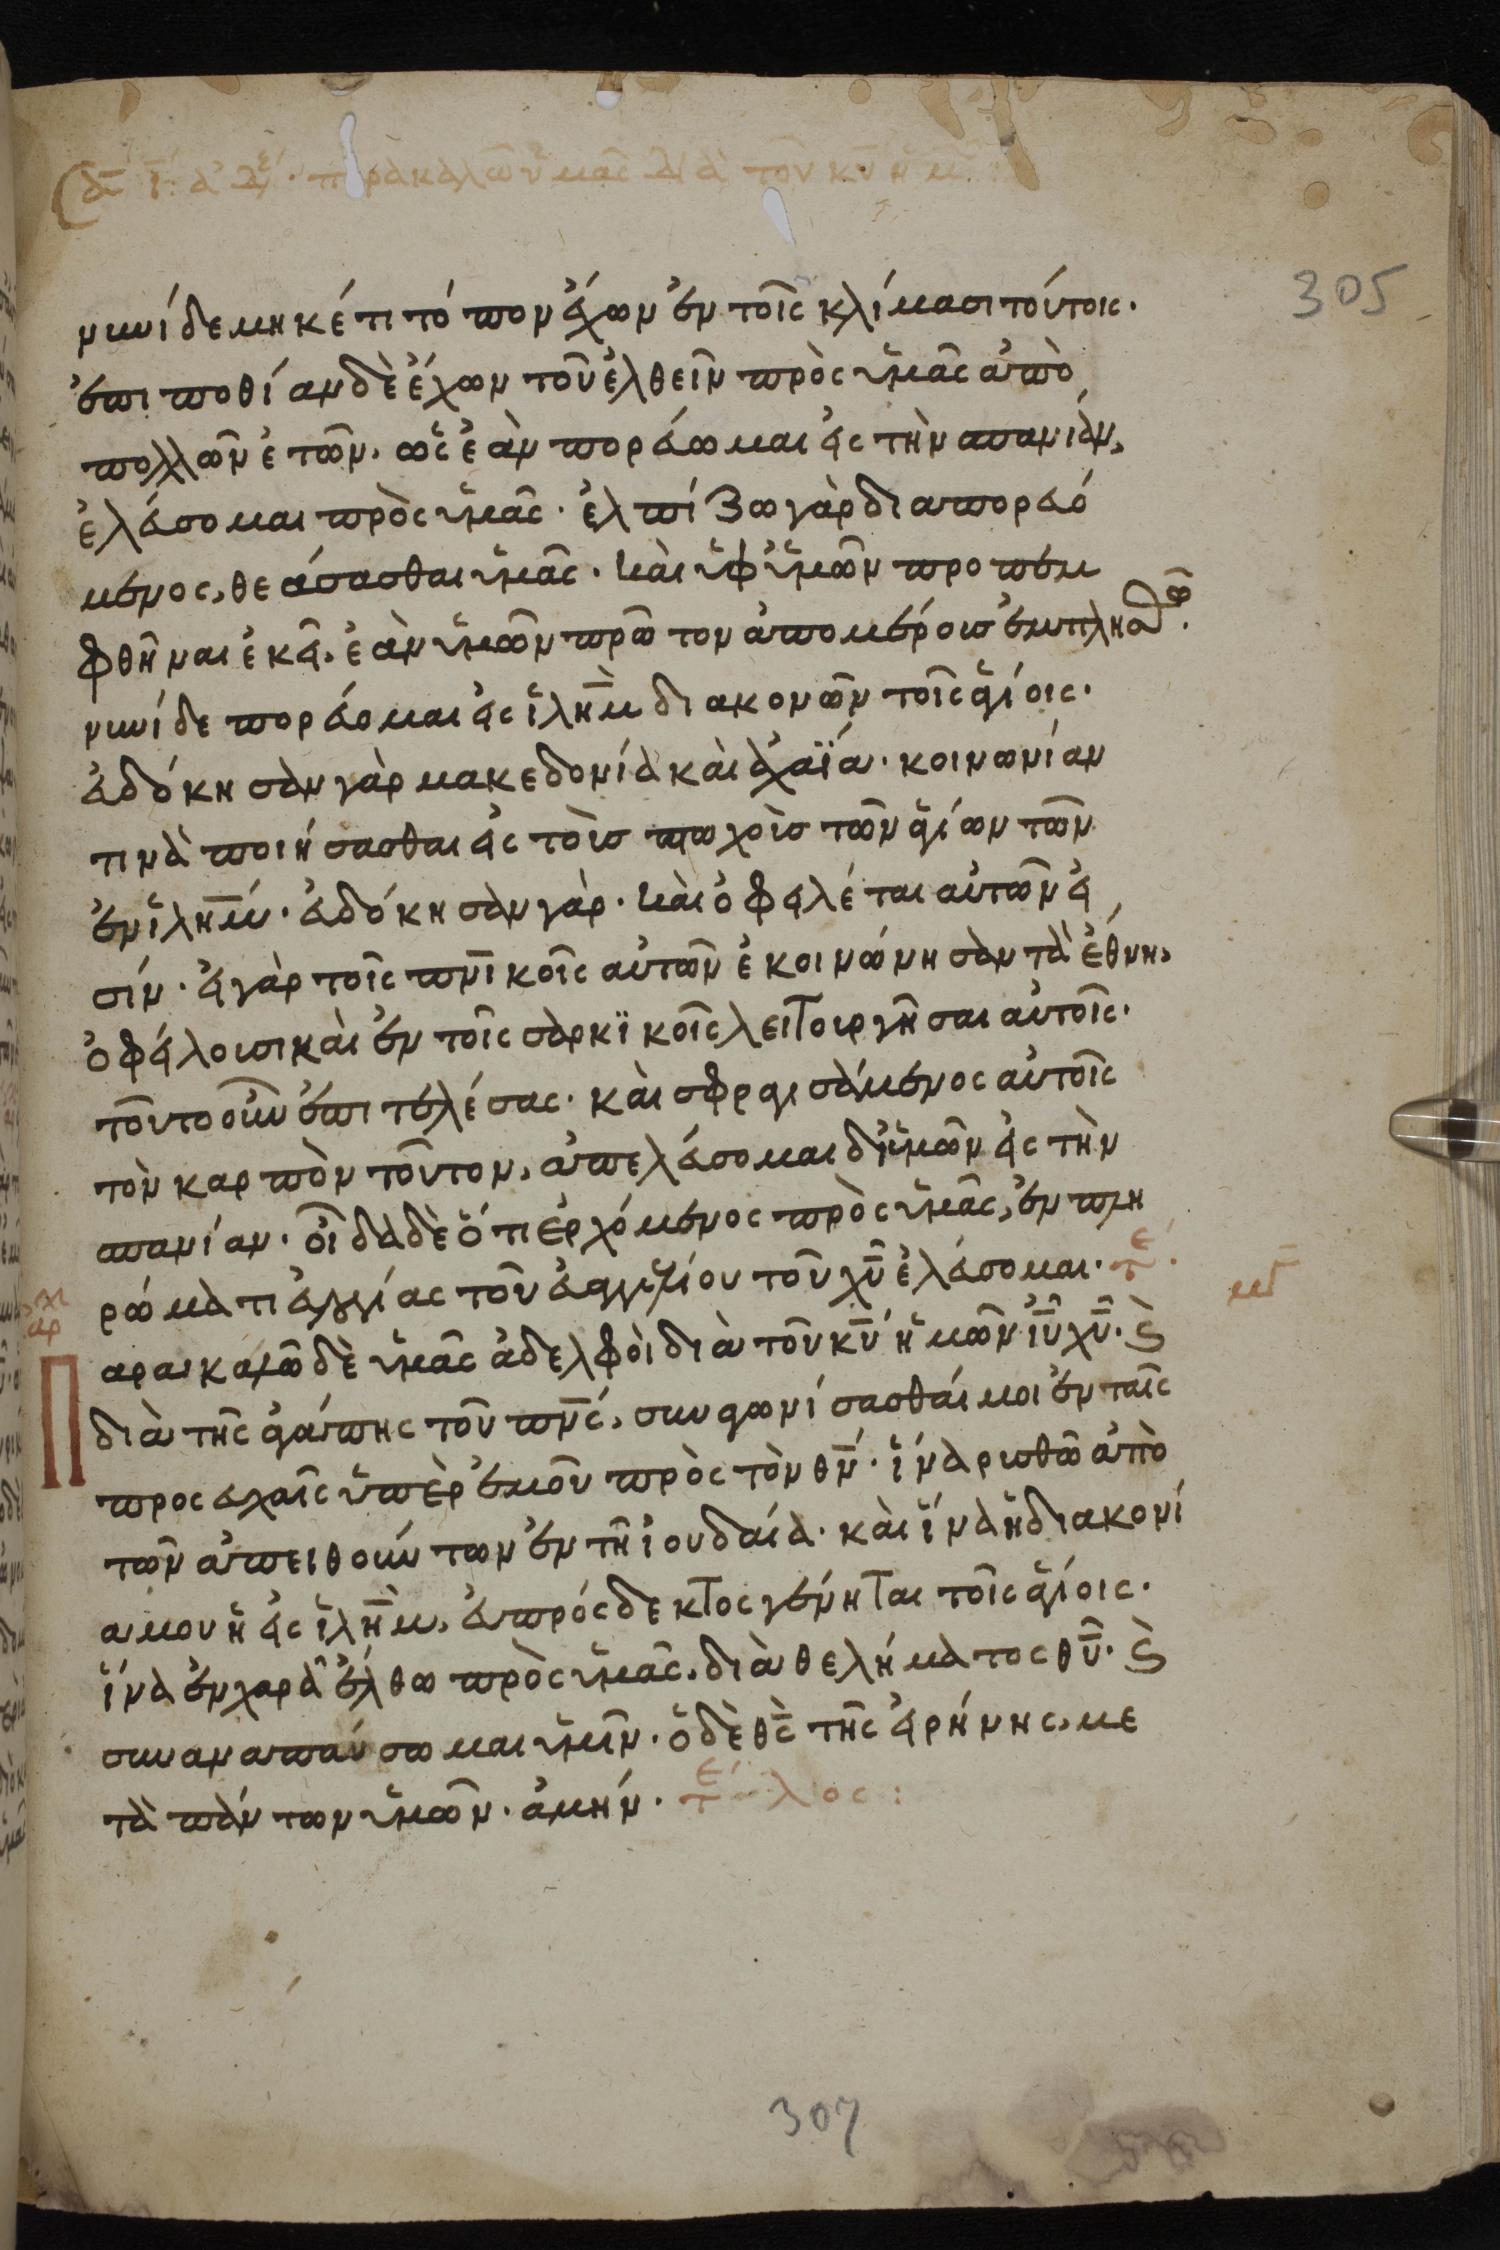 παρακαλῶ ὑμᾶς διὰ τοῦ κυ ἡμ
305
νυνὶ δε μηκέτι τόπον ἔχων ἐν τοῖς κλίμασι τούτοις·
ἐπιποθίαν δὲ ἔχων τοῦ ἐλθεῖν πρὸς ὑμᾶς ἀπὸ
πολλῶν ἐτῶν, ὡς ἐὰν πορεύωμαι εἰς τὴν σπανίαν,
ἐλεύσομαι πρὸς ὑμᾶς· ἐλπίζω γὰρ διαπορευό
μενος, θεάσασθαι ὑμᾶς· καὶ ὑφ ὑμῶν προπεμ
φθῆναι ἐκεῖ, ἐὰν ὑμῶν πρῶτον ἀπομέρους ἐμπλησθῶ·
νυνί δε πορεύομαι εἰς ἰλη̅μ διακονῶν τοῖς ἁγίοις·
εὐδόκησαν γὰρ μακεδονία καὶ ἀχαϊά· κοινωνίαν
τινὰ ποιήσασθαι εἰς τοὺς πτωχοὺς τῶν ἁγίων τῶν
ἐν ἰλη̅μ· εὐδόκησαν γὰρ· καὶ ὀφειλέται αὐτῶν εἰ
σίν· εἰ γὰρ τοῖς πν̅ικοῖς αὐτῶν ἐκοινώνησαν τὰ ἔθνη,
ὀφείλουσι καὶ ἐν τοῖς σαρκϊκοῖς λειτουργῆσαι αὐτοῖς·
τοῦτο οὖν ἐπιτελέσας· καὶ σφραγισάμενος αὐτοῖς
τὸν καρπὸν τοῦτον, ἀπελεύσομαι δι ὑμῶν εἰς τὴν
σπανίαν· οἶδα δὲ ὅτι ἐρχόμενος πρὸς ὑμᾶς, ἐν πλη
ρώματι εὐλογίας τοῦ εὐαγγελίου τοῦ χυ̅ ἐλεύσομαι· τε·
αρακαλῶ δὲ ὑμᾶς ἀδελφοὶ διὰ τοῦ κυ̅ ἡμῶν ιυ̅ χυ̅· ϛ̀
Π διὰ τῆς ἀγάπης τοῦ πν̅ς, συναγωνίσασθαί μοι ἐν ταῖς
προσευχαῖς ὑπὲρ ἐμοῦ πρὸς τὸν θν̅· ἵνα ρυσθῶ ἀπὸ
τῶν ἀπειθούντων ἐν τῆ ἰουδαία· καὶ ἵνα ἡ διακονί
α μου ἡ εἰς ἰλη̅μ, εὐπρόσδεκτος γένηται τοῖς ἁγίοις·
ἵνα ἐν χαρᾶ ἔλθω πρὸς ὑμᾶς, διὰ θελήματος θυ̅· ϛ̀
συναναπαύσωμαι ὑμῖν· ὁ δὲ θς̅ τῆς εἰρήνης, με
τὰ πάντων ὑμῶν· ἀμήν· τέλος :
307